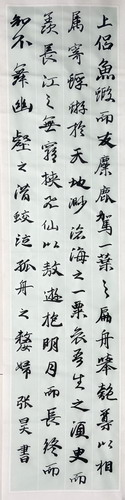 上侶魚蝦而友麋鹿駕一葉之扁舟舉匏尊以相
屬寄蜉蝣於天地渺滄海之一粟哀吾生之須臾而
羨長江之無窮挾飛仙以敖遊抱明月而長終而
知不舞幽壑之潛蛟泣孤舟之嫠婦 張昊書